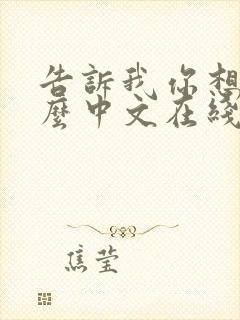 告訴我你想
麼中文在綫
焦莹